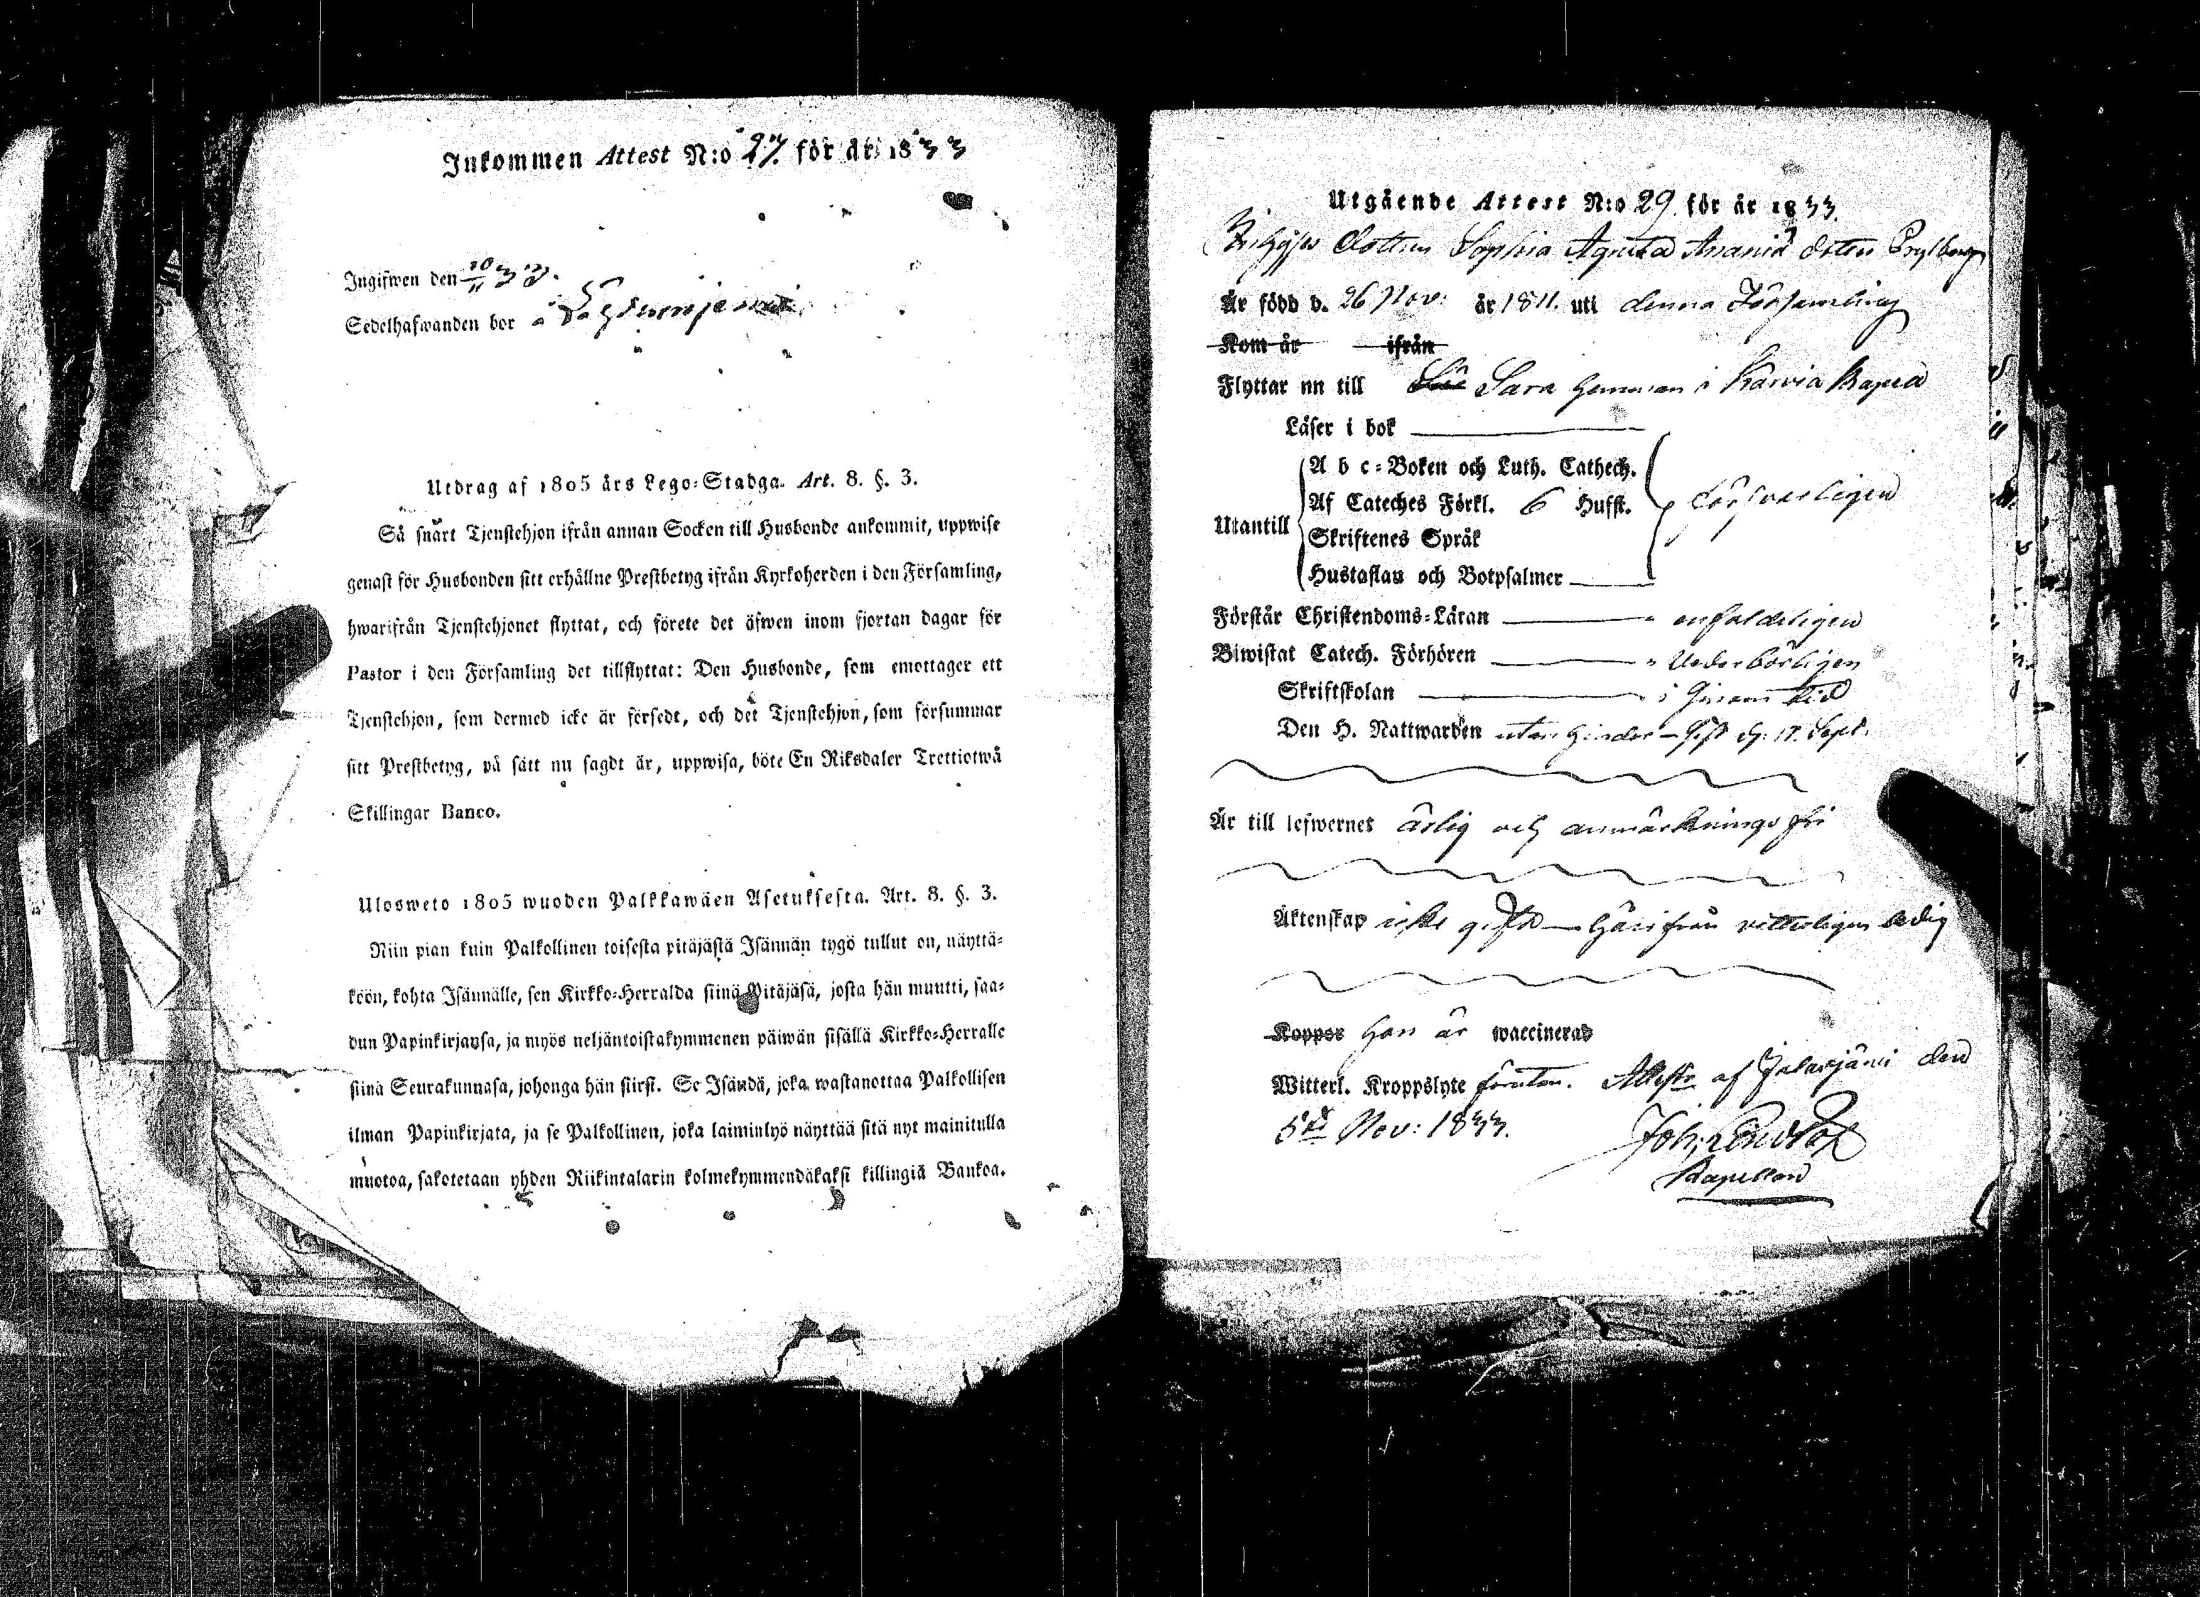 Inkommen Attest N:o 27. för år 1833
Ingifwen den 10/11 33.
Sedelhafwanden bor
Utdrag af 1805 års Lego-Stadga. Art. 8. §. 3.
Så snart Tjenstehjon ifrån annan Socken till Husbonde ankommit, uppwise
genast för Husbonden sitt erhållne Prestbetyg ifrån Kyrkoherden i den Församling,
hwarifrån Tjenstehjonet flyttat, och förete det äfwen inom fjortan dagar för
Pastor i den Församling det tillflyttat: Den Husbonde, som emottager ett
Tjenstehjon, som dermed icke är försedt, och det Tjenstehjon, som försummar
sitt Prestbetyg, på sätt nu sagdt är, uppwisa, böte En Riksdaler Trettiotwå
Skillingar Banco.
Ulosweto 1805 wuoden Palkkawäen Asetuksesta. Art. 8. §. 3.
Niin pian kuin Palkollinen toisesta pitäjästä Isännän tygö tullut on, näyttä-
köön, kohta Isännälle, sen Kirkko-Herralda siinä Pitäjäsä, josta hän muutti, saa-
dun Papinkirjansa, ja myös neljäntoistakymmenen päiwän sisällä Kirkko-Herralle
siinä Seurakunnasa, johonga hän siirsi. Se Isändä, joka wastanottaa Palkollisen
ilman Papinkirjata, ja se Palkollinen, joka laiminlyö näyttää sitä nyt mainitulla
muotoa, sakotetaan yhden Riikintalarin kolmekymmendäkaksi killingiä Bankoa.
Utgående Attest N:o 29. för år 1833.
Dottren Sophia Agneta Ananiæ dotter
Är född d. 26 Nov: år 1811. uti denna Församling
Kom år ifrån
Flyttar nu till Sara hemman i Karvia Kapell
Läser i bok
A b c-Boken och Luth. Cathech.
Af Cateches Förkl. 6 Hufst.
Utantill försvarligen
Skriftenes Språk
Hustaflan och Botpsalmer
Förstår Christendoms-Läran enfaldeligen
Biwistat Catech. Förhören Vederbörligen
Skriftskolan i sinom tid
Den H. Nattwarden utan hinder – sist d. 17. Sept.
Är till lefwernet ärlig och anmärkningsfri
Äktenskap icke gift – härifrån vitterligen ledig
Koppor Hon är waccinerad
Witterl. Kroppslyte förutan. Attest. af Jalasjärvi den
5te Nov: 1833.
Kapellan